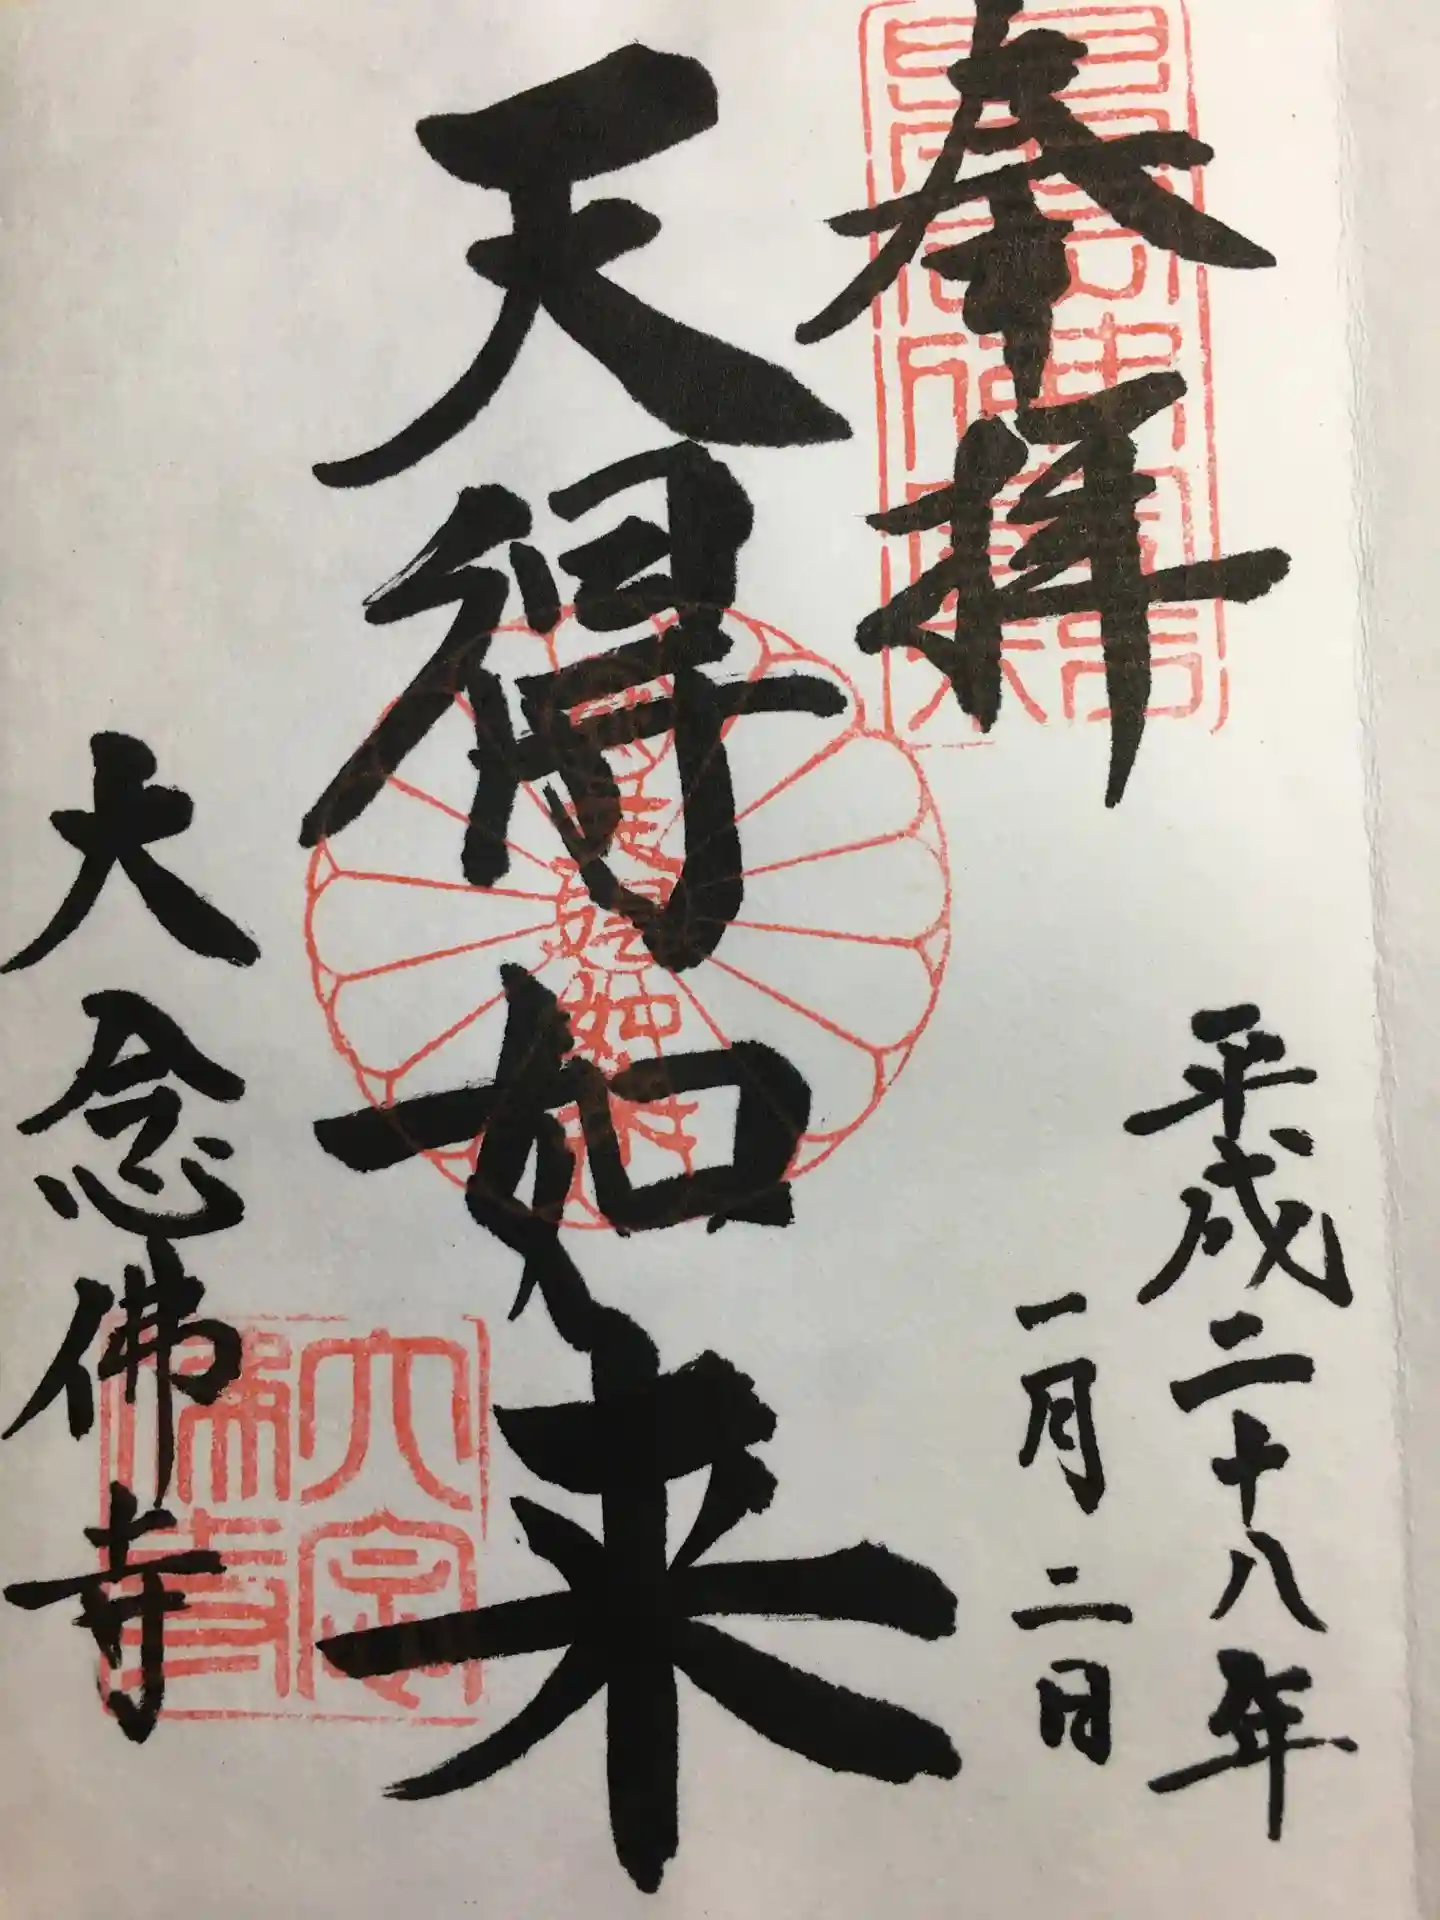 奉拝
平成二十八年
一月二日
天得如来
大念佛寺
大念
佛寺